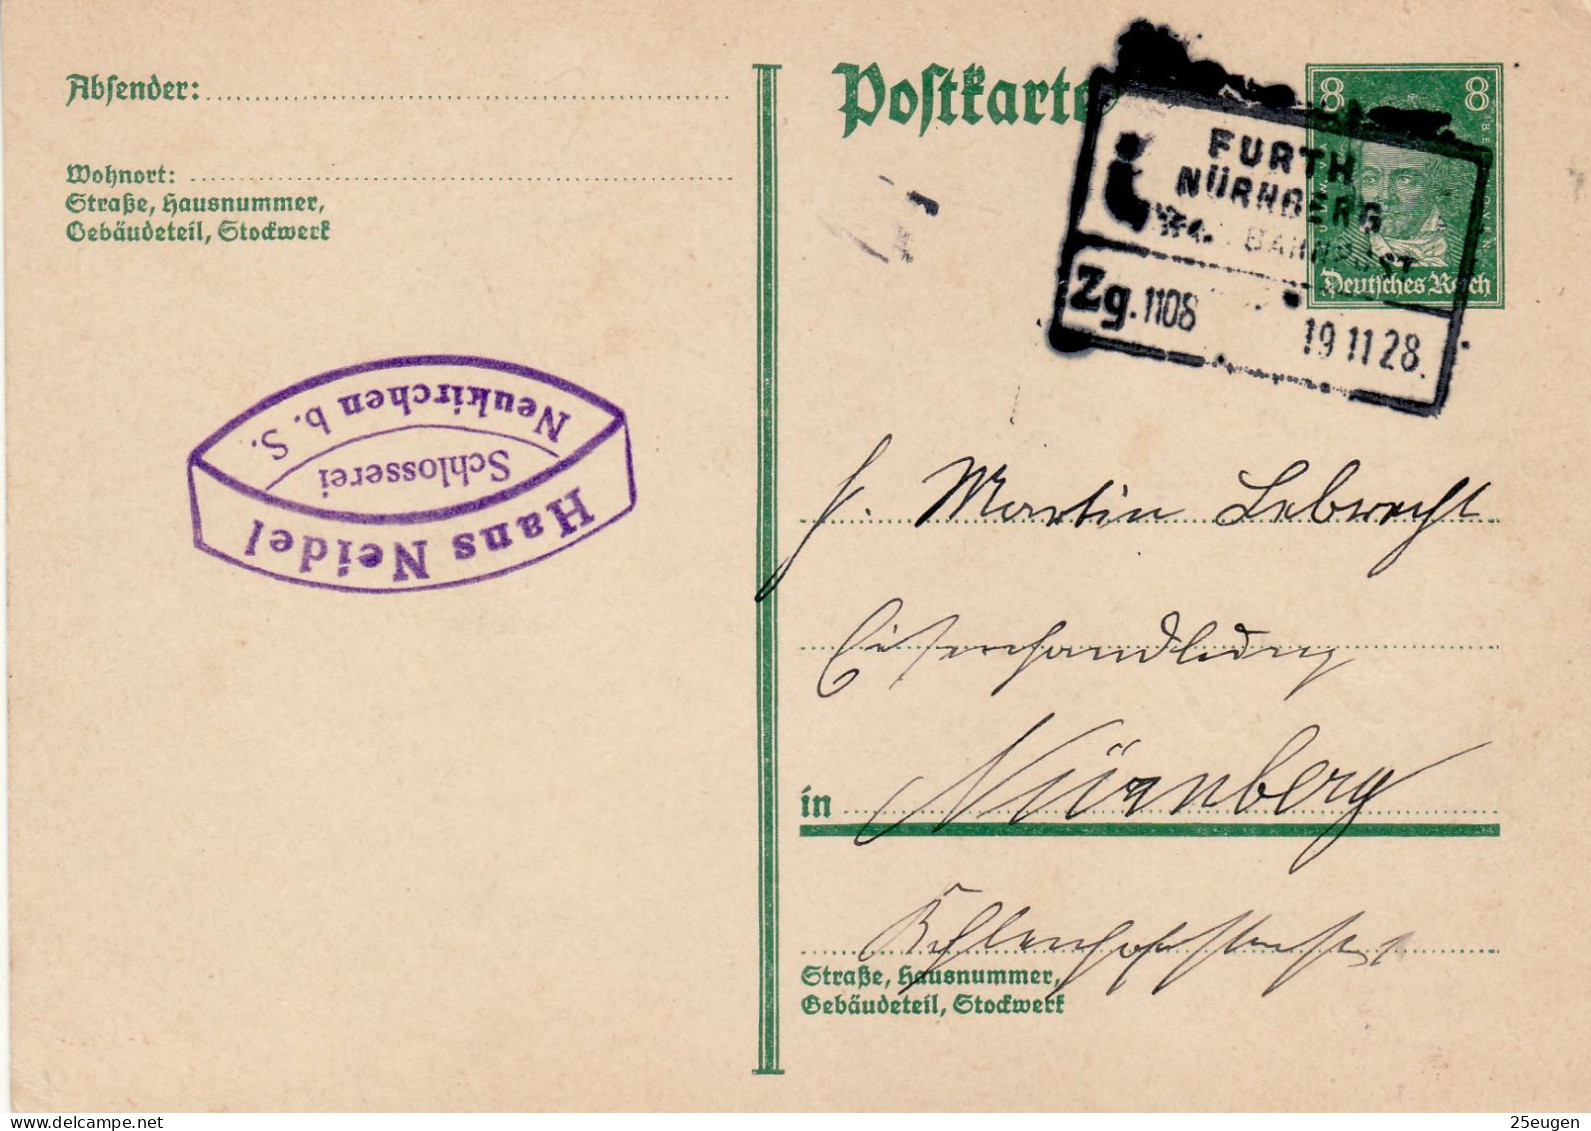 Absender:
Wohnort:
Straße, Hausnummer,
Gebäudeteil, Stockwerk
Hans Neidel
Schlosserei
Neukirchen b. S.
Postkarte
8 8
Deutsches Reich
FURTH
i
NÜRNBERG
BAHNPOST
Zg. 1108 19 11 28.
H. Martin Lebrecht
Eisenhandlung
in Nürnberg
Straße, Hausnummer,
Gebäudeteil, Stockwerk
delcampe.net
25eugen